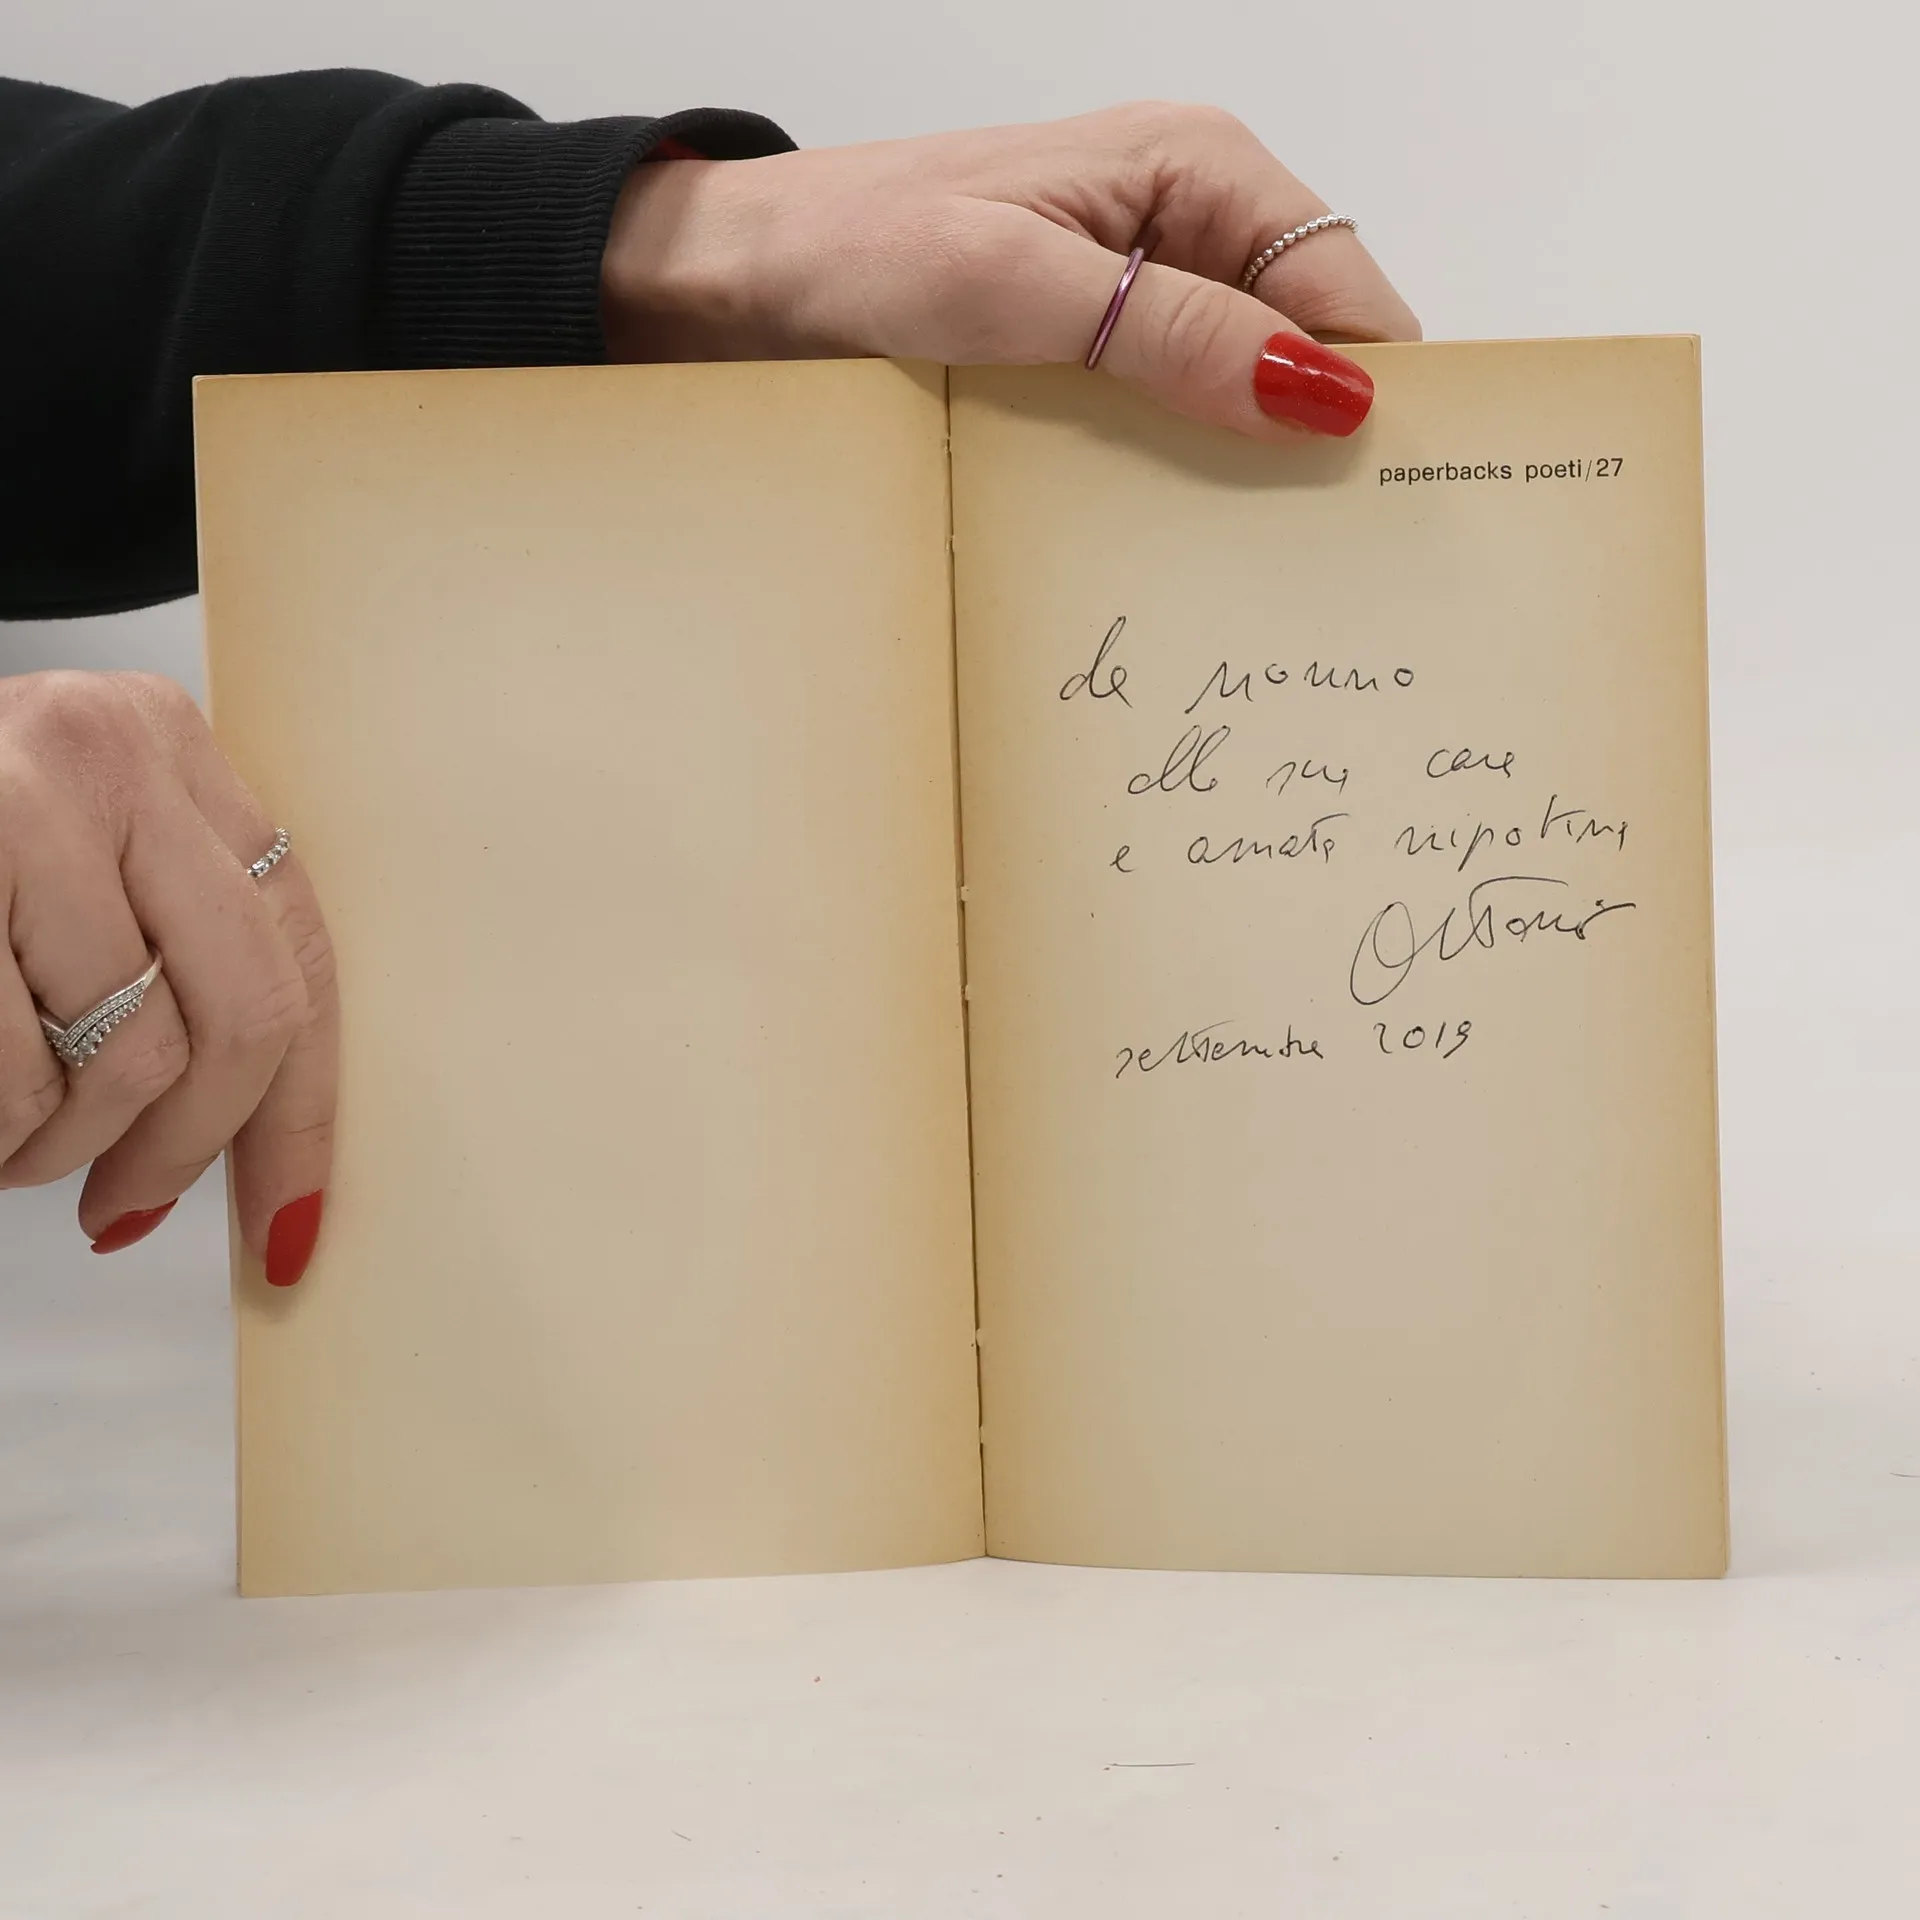 paperbacks poeti/27
da nonno
alla sua cara
e amata nipotina
settembre 2019